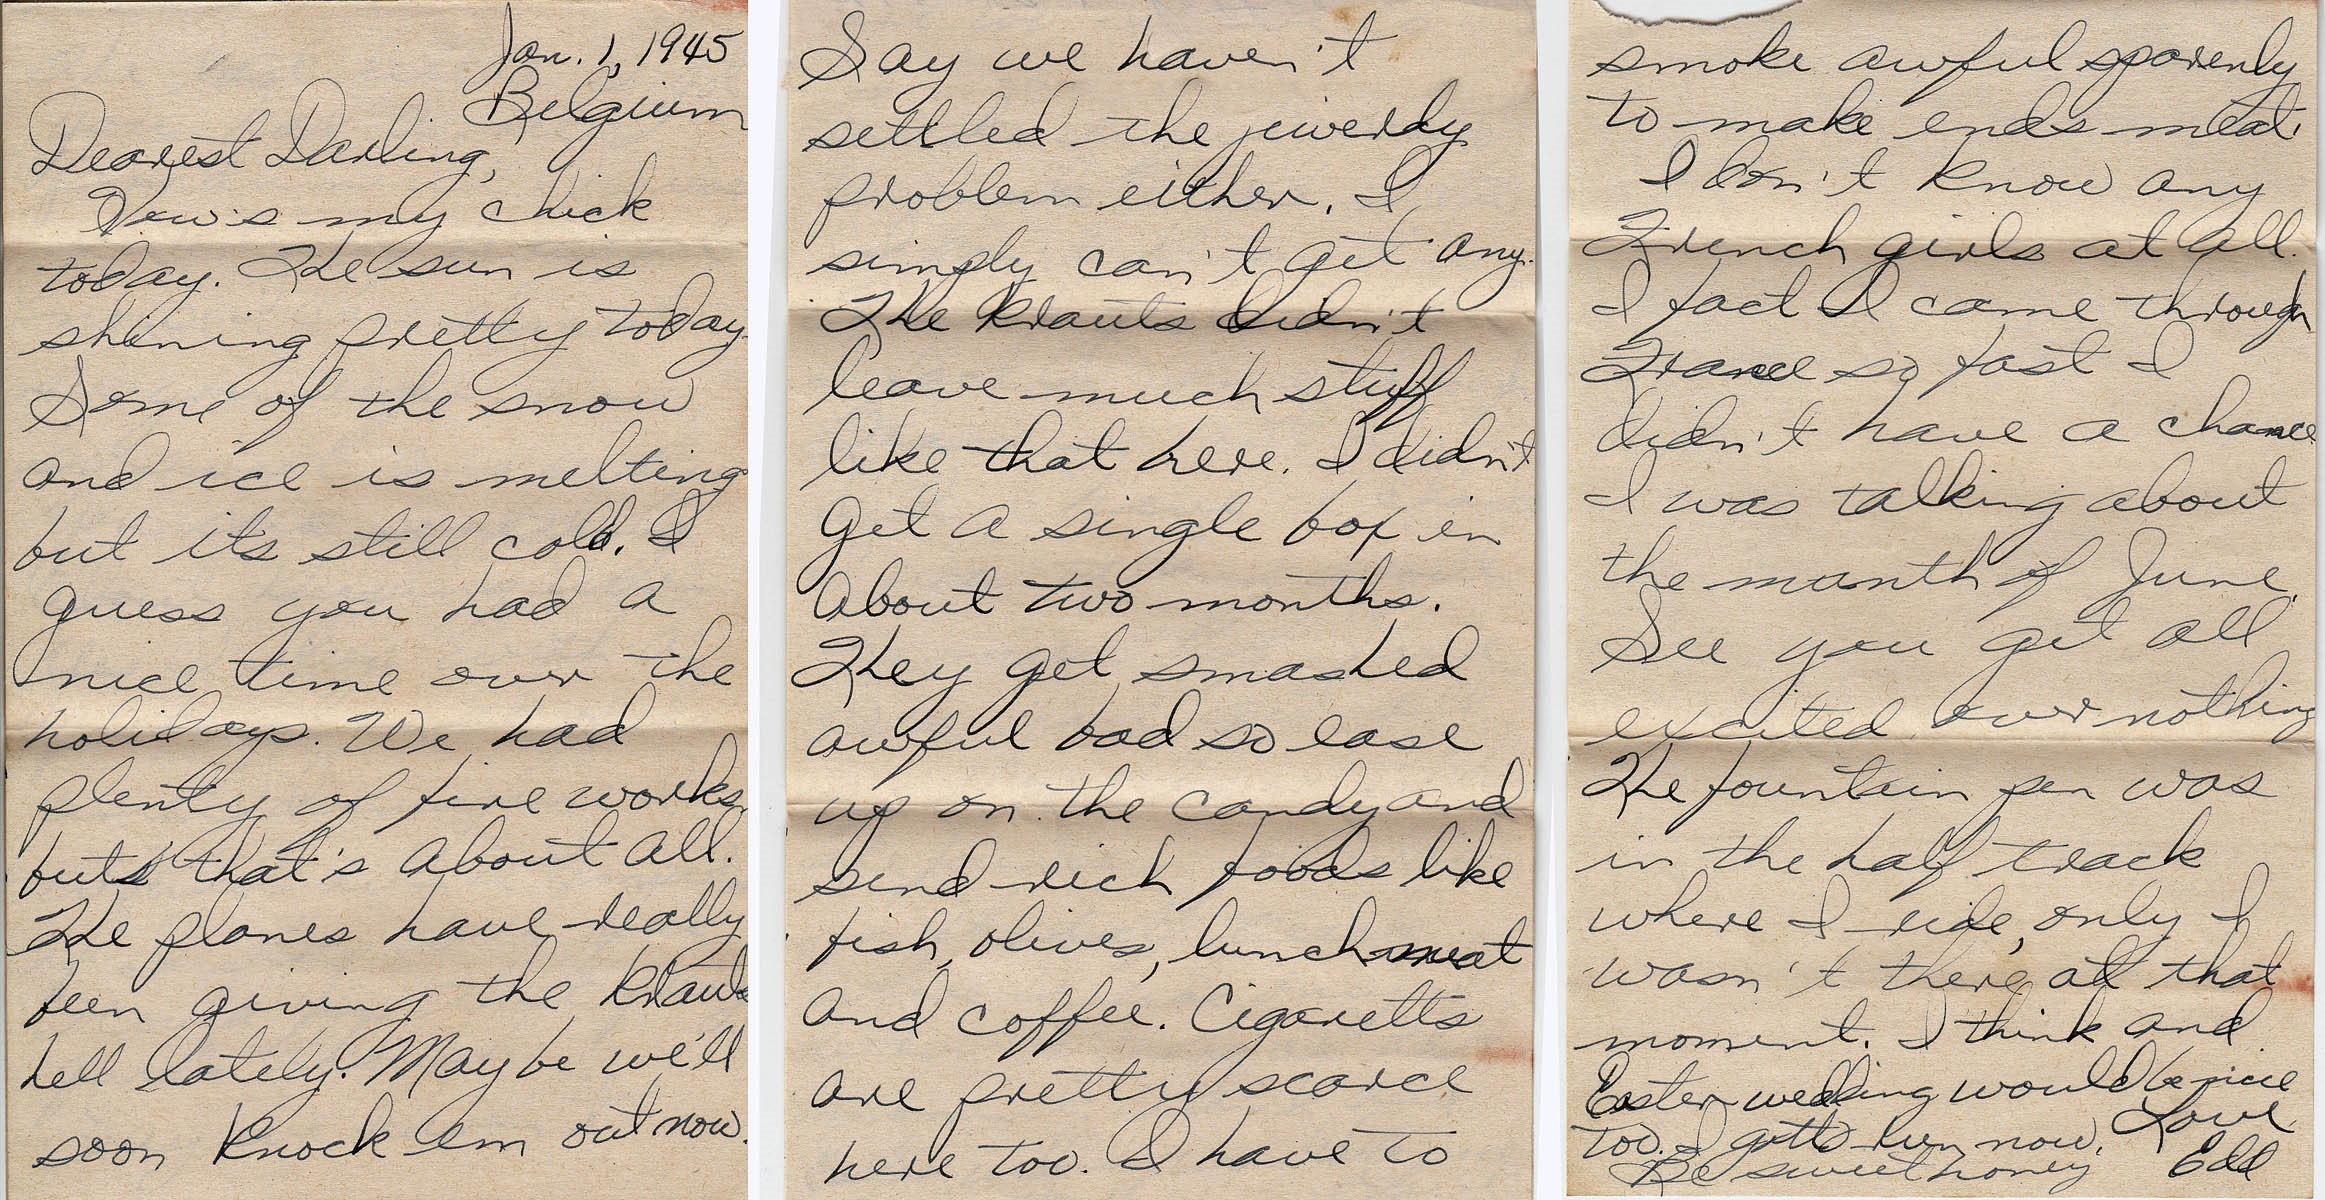 Jan. 1, 1945
Belgium
Dearest Darling,
How's my chick
today. The sun is
shining pretty today.
Some of the snow
and ice is melting
but its still cold. I
guess you had a
nice time over the
holidays. We had
plenty of fire works
but that's about all.
The planes have really
been giving the krauts
hell lately. Maybe we'll
soon knock em out now.
Say we haven't
settled the jewerly
problem either. I
simply can't get any.
The krauts didn't
leave much stuff
like that here. I didn't
get a single box in
about two months.
They get smashed
awful bad so ease
up on the candy and
send rich foods like
fish, olives, lunch meat
and coffee. Cigaretts
are pretty scarce
here too. I have to
smoke awful sparenly
to make ends meat.
I don't know any
French girls at all.
I fact I came through
France so fast I
didn't have a chance
I was talking about
the month of June.
See you get all
excited over nothing
The fountain pen was
in the half track
where I ride, only I
wasn't there at that
moment. I think and
Easter wedding would be nice
too. I gotta run now. Love
Be sweet honey Edd